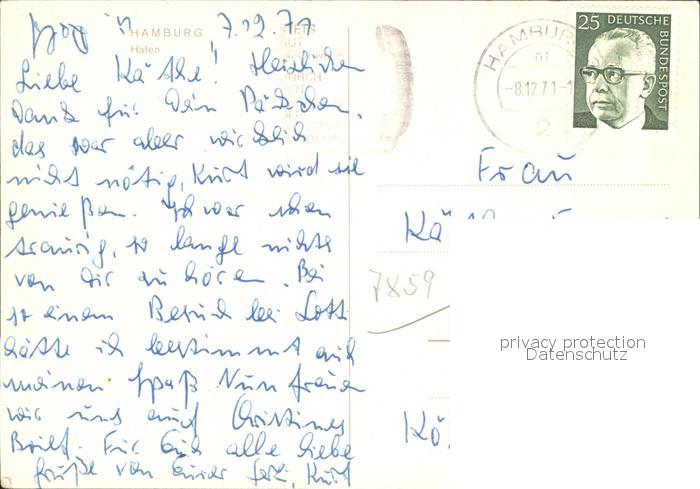 HAMBURG
Hafen
7.12.71
Liebe Käthe! Herzlichen
Dank für Dein Päckchen,
das war aber wirklich
nicht nötig, Kurt wird sie
genießen. Ich war schon
traurig, so lange nichts
von Dir zu hören. Bei
so einem Besuch bei Lotti
hätte ich bestimmt auch
meinen Spaß. Nun freuen
wir uns auf Christines
Brief. Für Euch alle liebe
Grüße von Eurer Kurt
HAMBURG
-8.12.71-1
2
25 DEUTSCHE
BUNDESPOST
Frau
Kä
7859
privacy protection
Datenschutz
Kö